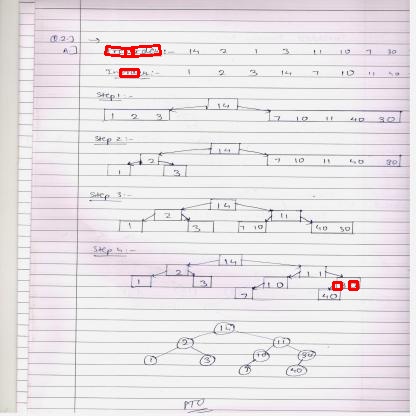 Q.2.) →
A.] :- 14 2 1 3 11 10 7 30
:- 1 2 3 14 7 10 11 40
Step 1 :-
14
1 2 3 7 10 11 40 30
Step 2 :-
14
2 7 10 11 40 30
1 3
Step 3 :-
14
2 11
1 3 7 10 40 30
Step 4 :-
14
2 11
1 3 10
7 40
14
2 11
1 3 10 30
7 40
PTO